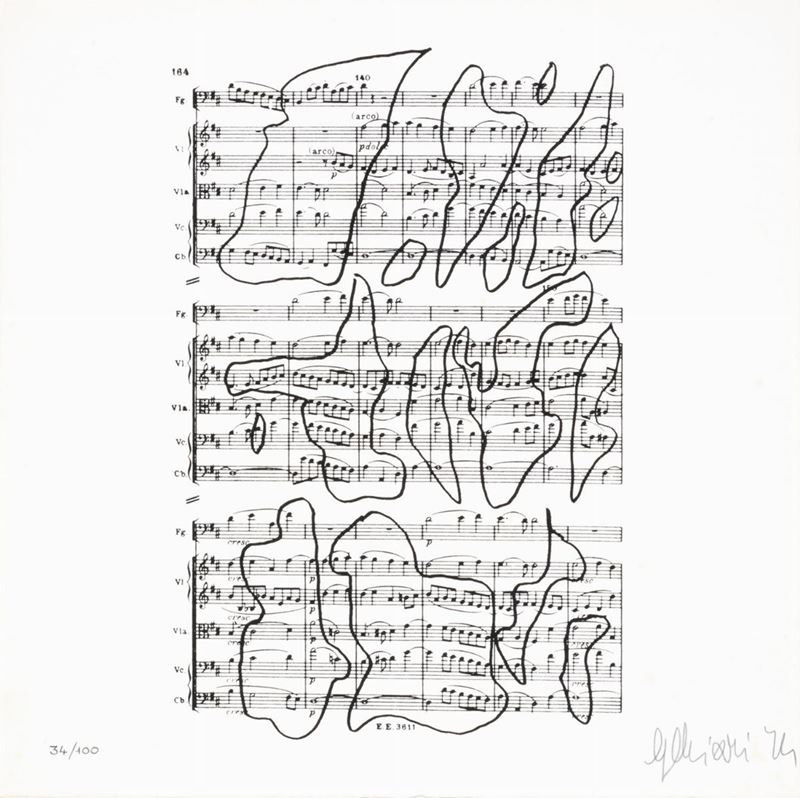 164
140
Fg
(arco)
Vl
(arco)
pdol
p
Vla
Vc.
Cb
Fg.
Vl
Vla.
Vc
Cb.
Fg
cresc
p
Vl
cresc
p
cresc
cresc
p
Vla
cresc
p
Vc
cresc
p
Cb
cresc
p
E.E. 3611
34/100